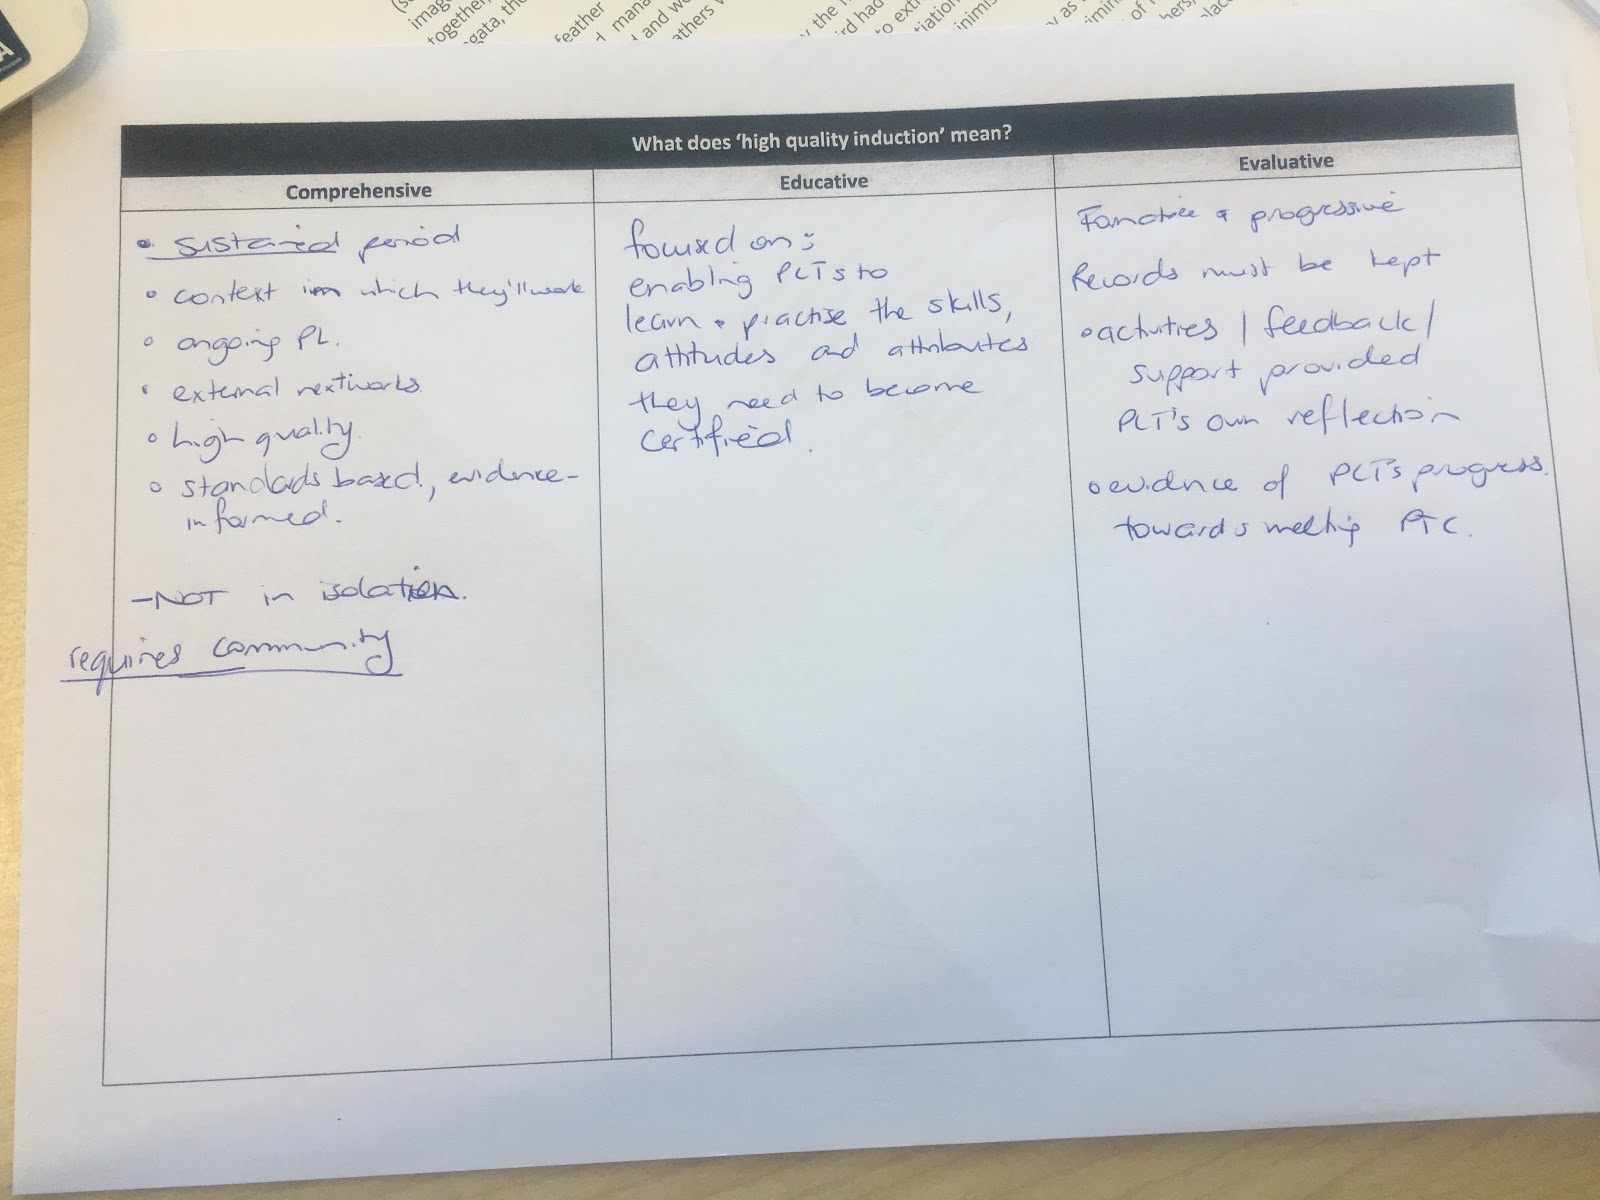 imag
together,
gata, the
feather
d mana
d and we
athers v
y the
ird had
to extr
iation
inimis
y as
imin
of
hers,
lac
A
What does 'high quality induction' mean?
Comprehensive
Educative
Evaluative
• sustained period
• context in which they'll work
• ongoing PL.
• external nextworks
• high quality.
• standards based, evidence-
informed.
- NOT in isolation.
requires community
focused on:
enabling PCTs to
learn + practise the skills,
attitudes and attributes
they need to become
certified.
Formative + progressive
Records must be kept
• activities / feedback /
support provided
PCT's own reflection
• evidence of PCT's progress.
towards meeting PTC.